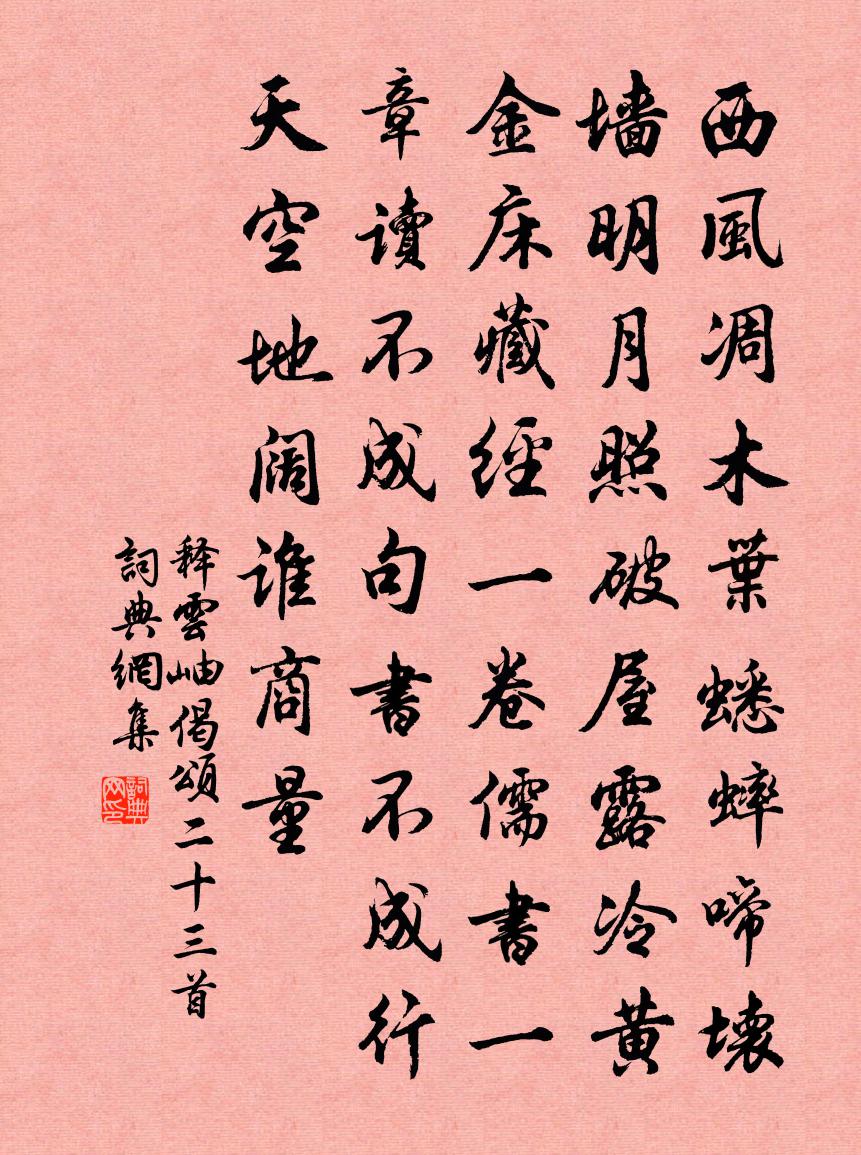 西風凋木葉蟋蟀啼壊
墙明月照破屋露冷黄
金床藏經一卷儒書一
章讀不成句書不成行
天空地阔谁商量
释雲岫偈頌二十三首
詞典網集
詞典网印